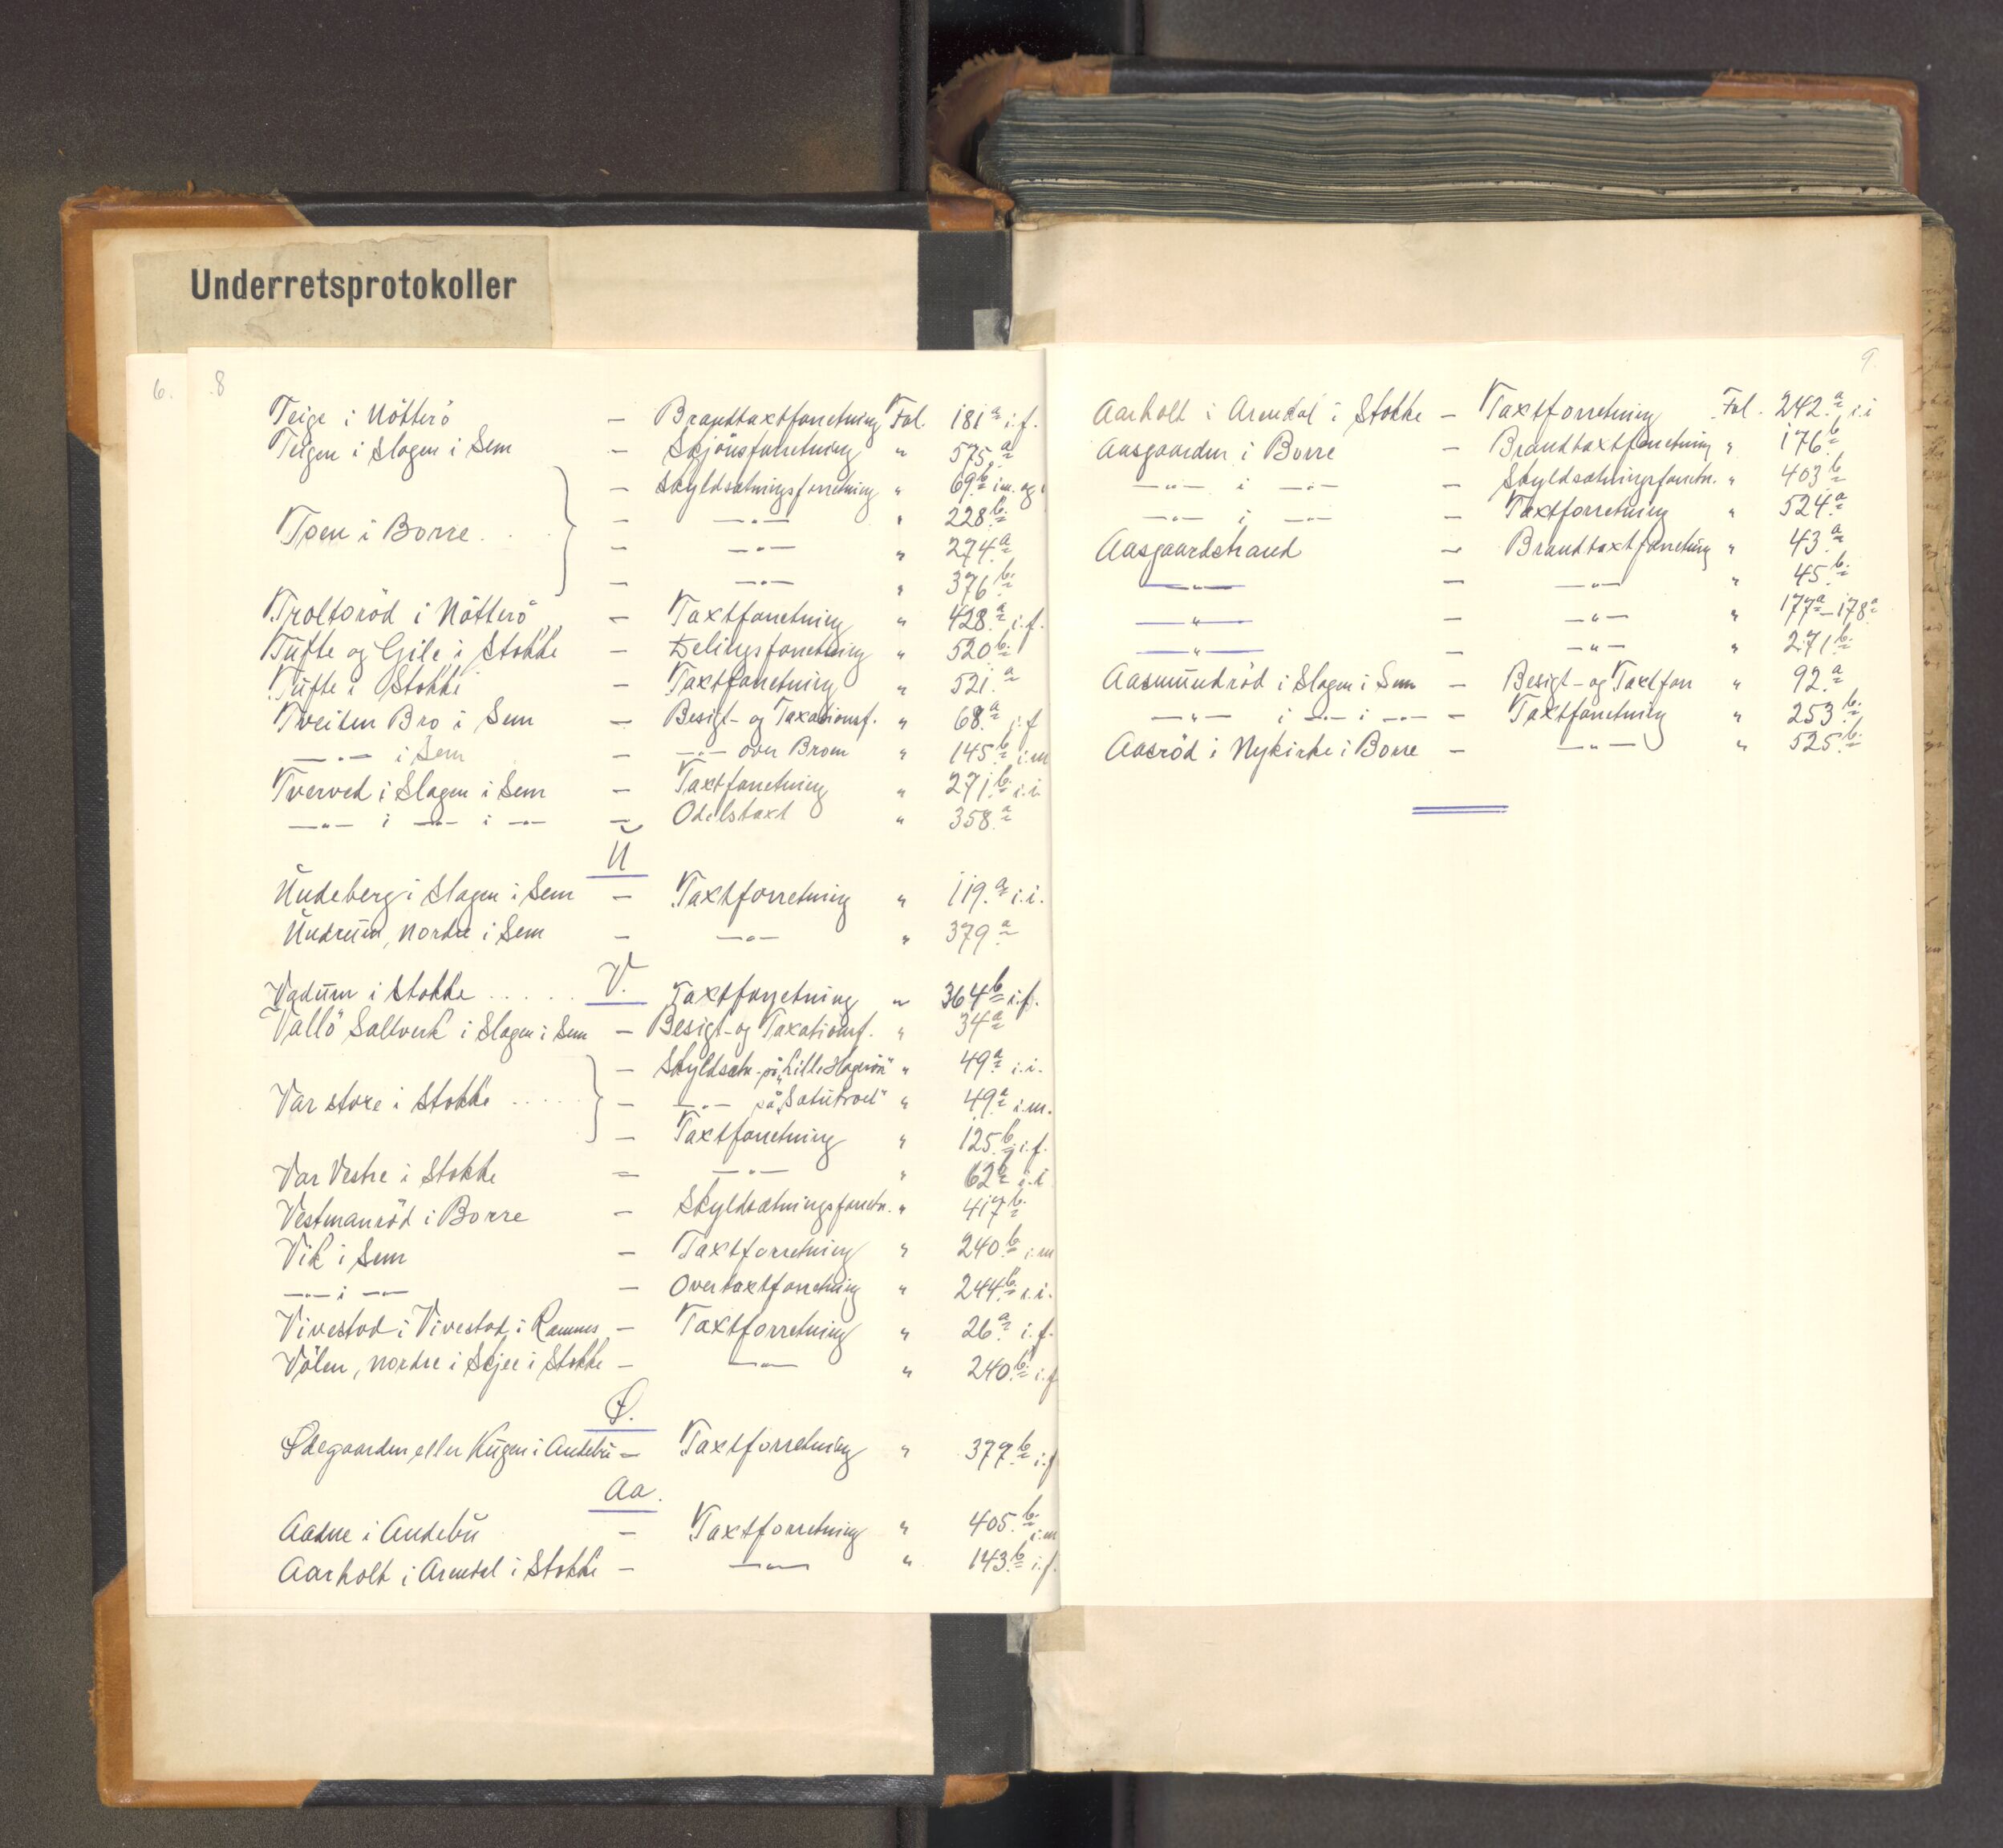 Underretsprotokoller
6.
8
Teige i Nötterö — Brandtaxtforretning Fol. 181 a i.f.
Teigen i Slagen i Sem — Skjönsforretning " 575 a
— Skyldsætningsforretning " 69 b i.m. og
Toen i Borre . . . — —"— " 228 b
— —"— " 274 a
— —"— " 376 b
Troltoröd i Nötterö — Taxtforretning " 428 a i.f.
Tufte og Gile i Stokke — Delingsforretning " 520 b
Tufte i Stokke — Taxtforretning " 521 a
Tveiten Bro i Sem — Besigt- og Taxationsf. " 68 a i.f
—"— i Sem — —"— over Broen " 145 b i.m
Tverved i Slagen i Sem — Taxtforretning " 271 b i.i.
—"— i —"— i —"— — Odelstaxt " 358 a
U
Undeberg i Slagen i Sem — Taxtforretning " 119. a i.i.
Undrum, nordre i Sem — —"— " 379 a
V.
Vadum i Stokke . . . . . Taxtforretning " 364 b i.f.
Vallö Saltverk i Slagen i Sem — Besigt- og Taxationsf. " 34 a
— Skyldsætn. på "Lille " 49 a i.i.
Var store i Stokke . . . . . — —"— på " 49 a i.m.
— Taxtforretning " 125 b i.f.
Var Vestre i Stokke — —"— " 62 a i.i
Vestmanröd i Borre — Skyldsætningsforretn. " 417 b
Vik i Sem — Taxtforretning " 240 b i.m
—"— i —"— — Overtaxtforretning " 244 b i.i.
Vivestad i Vivestad i Ramnes — Taxtforretning " 26 a i.f.
Völen, nordre i Skjee i Stokke — —"— " 240 b i.f
Ø.
Ødegaarden eller Kugen i Andebu — Taxtforretning " 377 b i.f
Aa.
Aadne i Andebu — Taxtforretning " 405 b i.m
Aarholt i Arendal i Stokke — —"— " 143 b i.f.
9.
Aarholt i Arendal i Stokke — Taxtforretning Fol. 242. a i.i
Aasgaarden i Borre — Brandtaxtforretning " 176 b
—"— i —"— — Skyldsætningsforretn. " 403 b
—"— i —"— — Taxtforretning " 524 a
Aasgaardstrand — Brandtaxtforretning " 43 a
—"— — —"— " 45 b
—"— — —"— " 177 a — 178 a
—"— — —"— " 271 b
Aasmundröd i Slagen i Sem — Besigt- og Taxtforr " 92 a
—"— i —"— i —"— — Taxtforretning " 253 b
Aasröd i Nykirke i Borre — —"— " 525 b